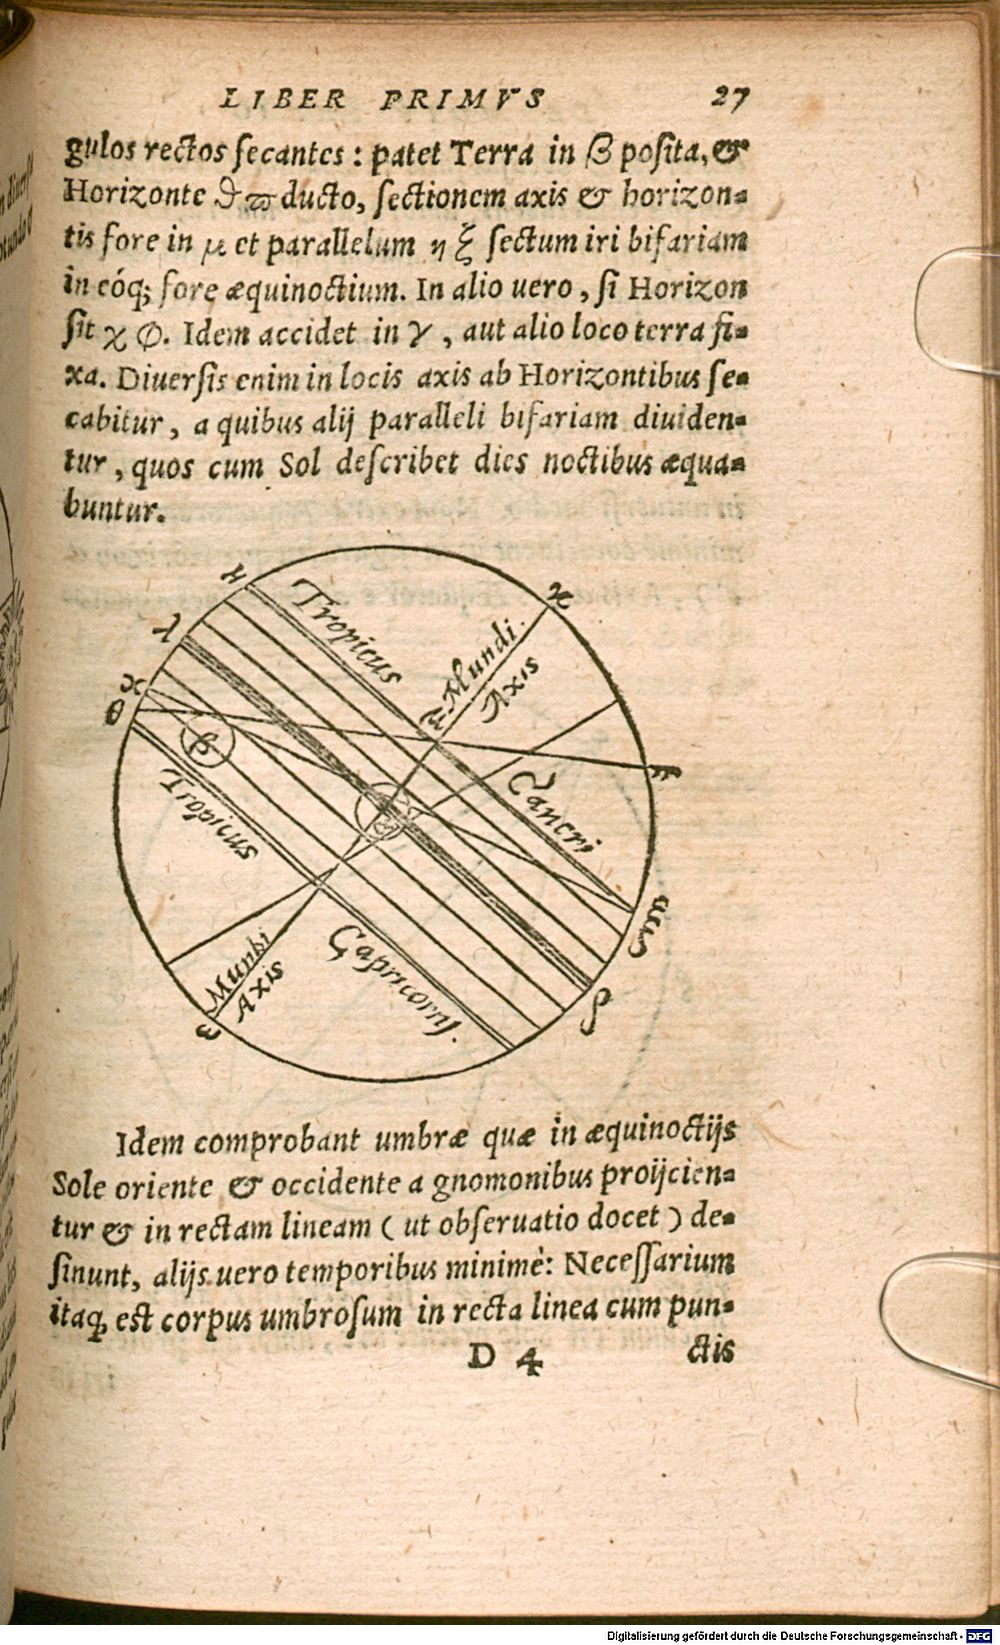 LIBER PRIMVS 27
gulos rectos ſecantes : patet Terra in β poſita, &
Horizonte ϑ ϖ ducto, ſectionem axis & horizon-
tis fore in μ et parallelum η ξ ſectum iri bifariam
in eóq; fore æquinoctium. In alio uero, ſi Horizon
ſit χ φ. Idem accidet in γ, aut alio loco terra fi-
xa. Diuerſis enim in locis axis ab Horizontibus ſe-
cabitur, a quibus alij paralleli bifariam diuiden-
tur, quos cum Sol deſcribet dies noctibus æqua-
buntur.
Tropicus
Mundi
Axis
Cancri
Tropicus
Capricorni.
Mundi
Axis
Idem comprobant umbræ quæ in æquinoctijs
Sole oriente & occidente a gnomonibus proijcien-
tur & in rectam lineam ( ut obſeruatio docet ) de-
ſinunt, alijs uero temporibus minimè: Neceſſarium
itaq; est corpus umbroſum in recta linea cum pun-
D 4 ctis
Digitalisierung gefördert durch die Deutsche Forschungsgemeinschaft - DFG